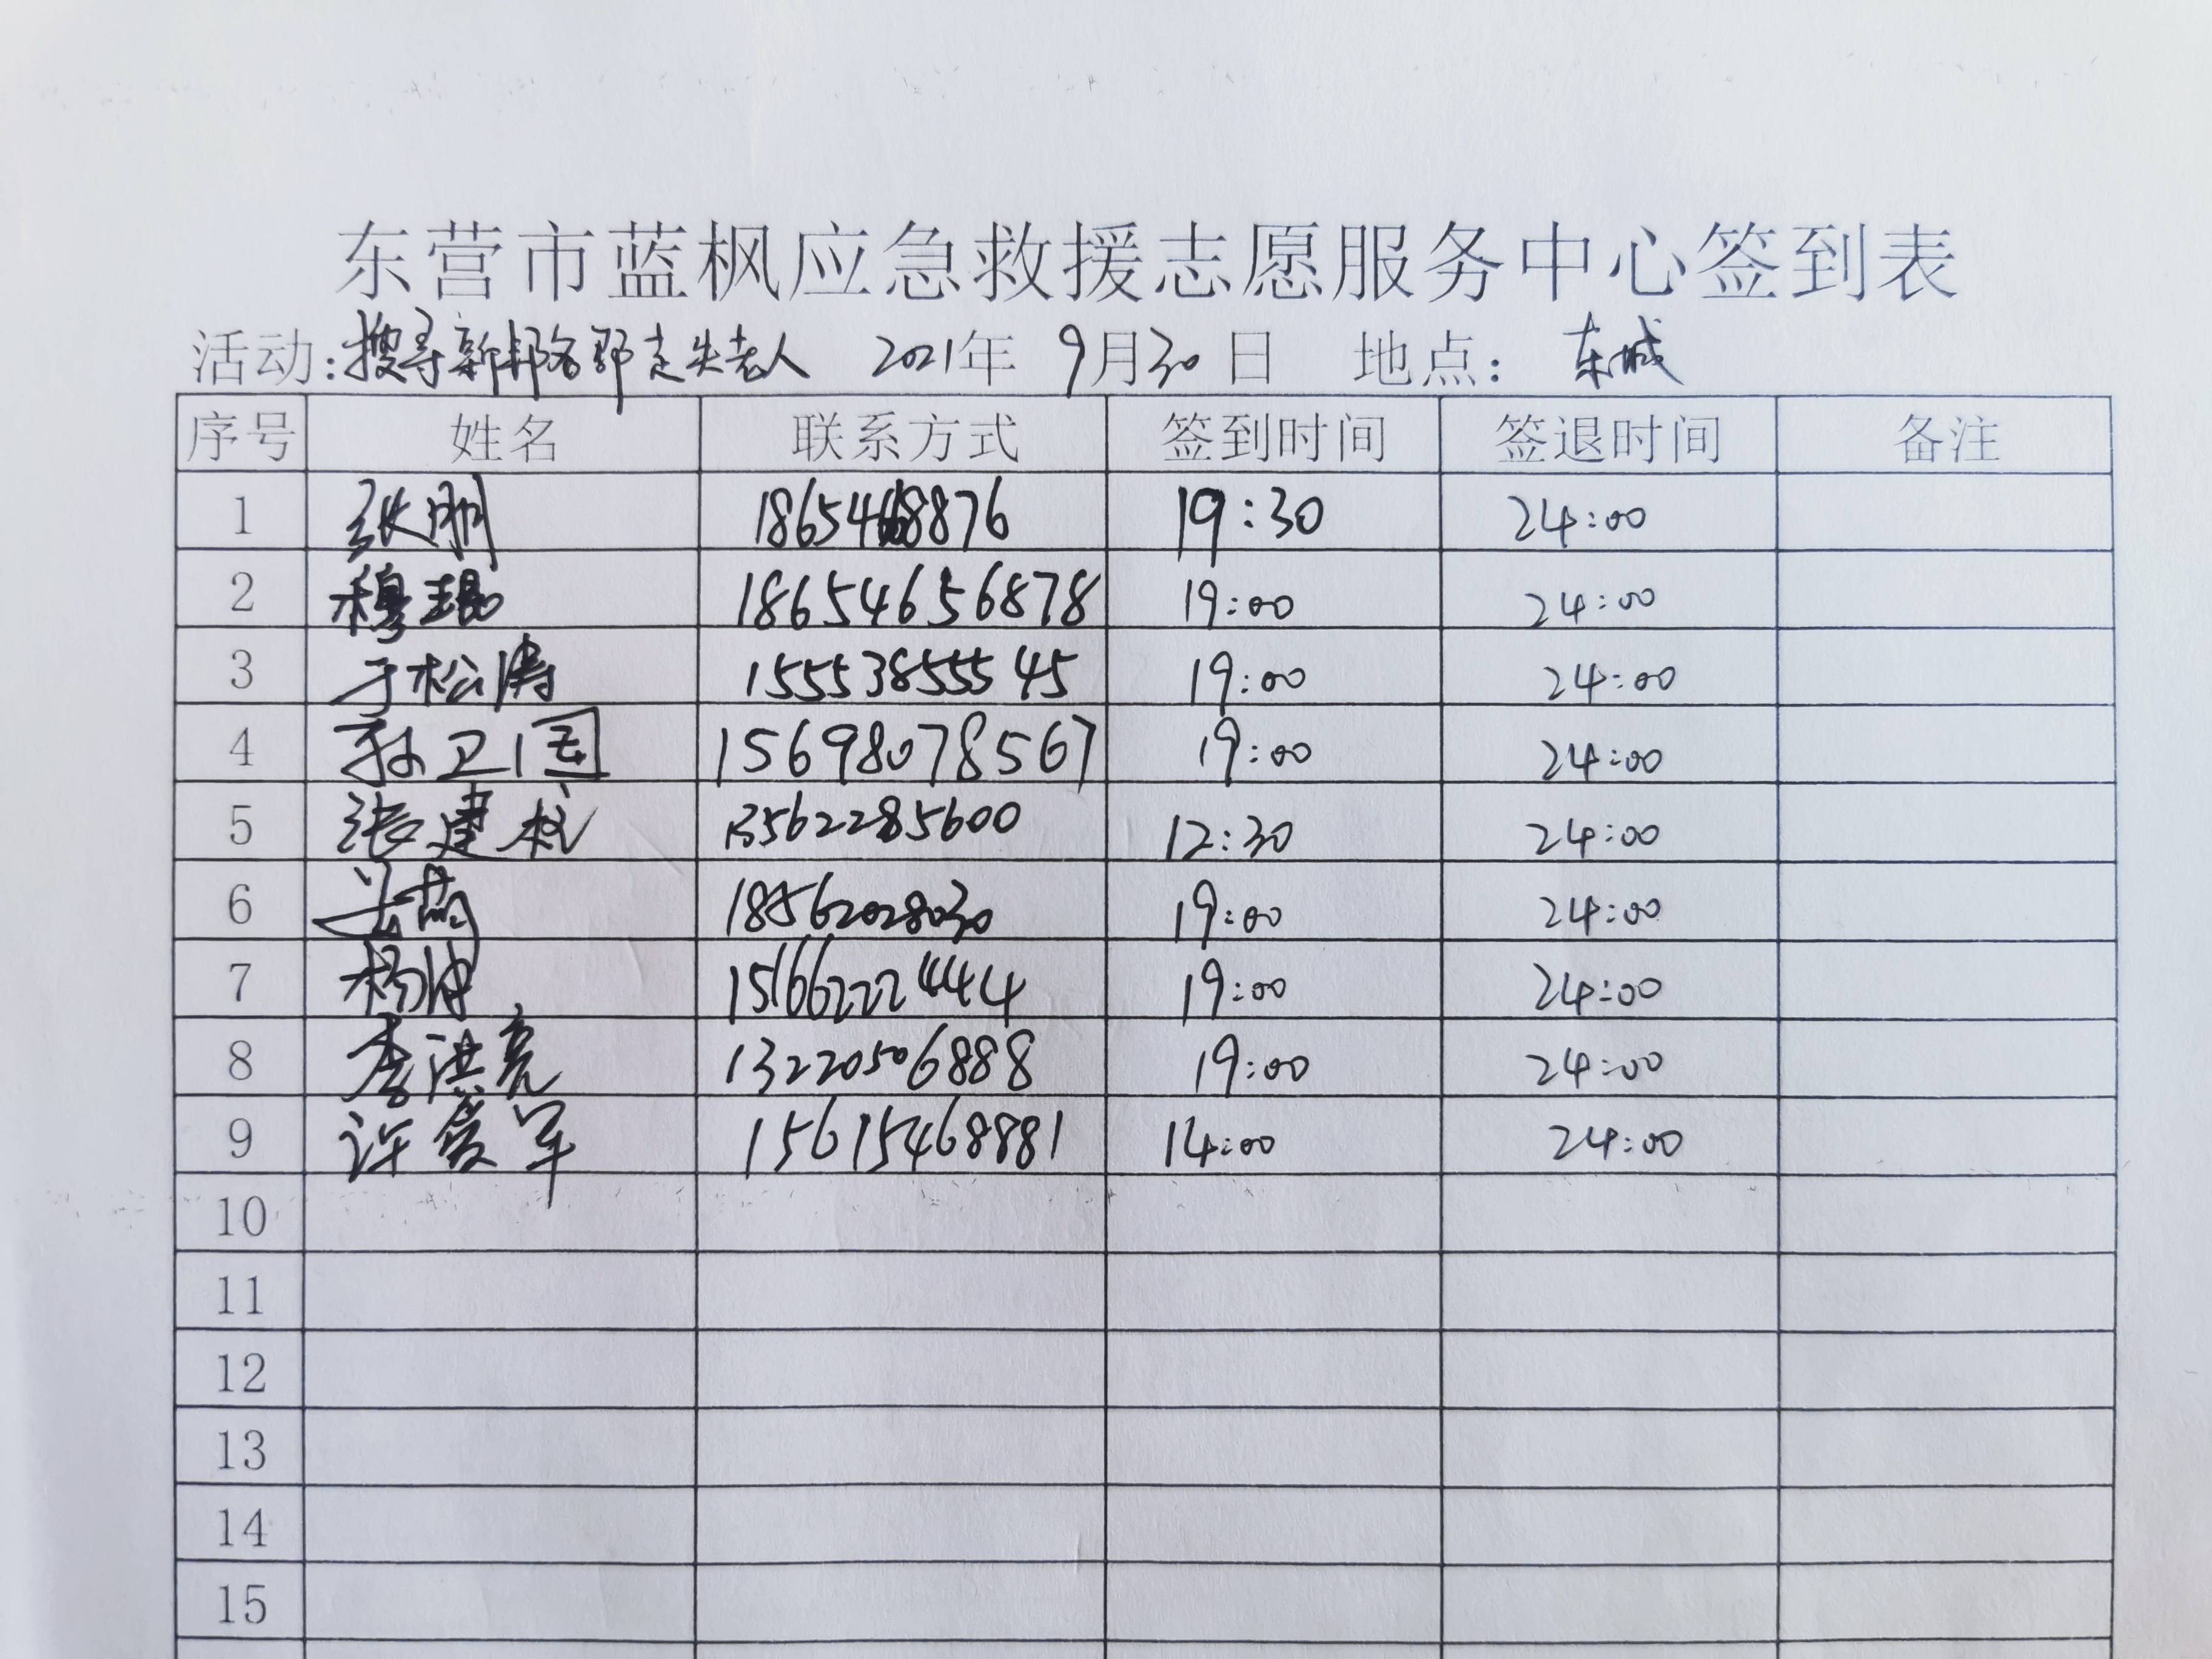 东营市蓝枫应急救援志愿服务中心签到表
活动:搜寻新邦洛郡走失老人 2021年 9月30日 地点: 东城
序号 姓名 联系方式 签到时间 签退时间 备注
1 张刚 19:30 24:00
2 穆琨 18654656878 19:00 24:00
3 于松涛 15553855545 19:00 24:00
4 孙卫国 15698078567 19:00 24:00
5 张建 13562285600 12:30 24:00
6 18562028030 19:00 24:00
7 杨 15166222444 19:00 24:00
8 李洪亮 13220506888 19:00 24:00
9 许爱军 15615468881 14:00 24:00
10
11
12
13
14
15